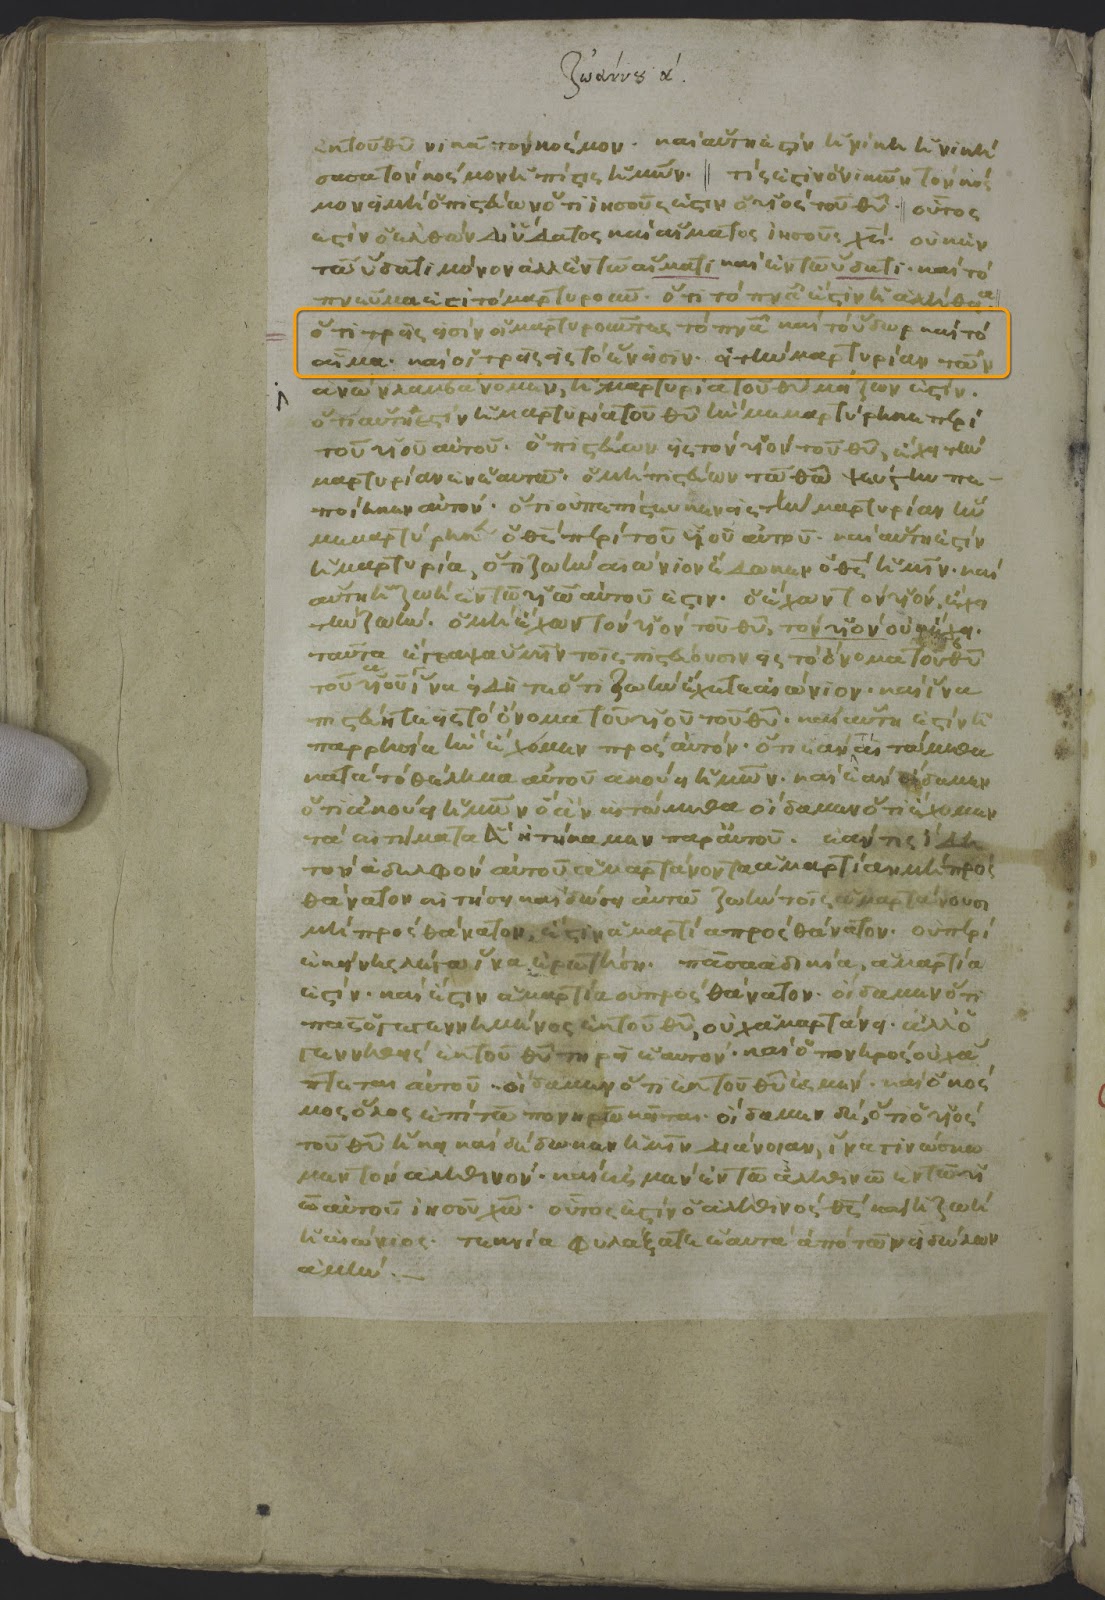 Ἰωάννου α΄.
ἐκ τοῦ θυ νικᾶ τὸν κόσμον· καὶ αὕτη ἐστὶν ἡ νίκη ἡ νική
σασα τὸν κόσμον ἡ πίστις ἡμῶν· τίς ἐστιν ὁ νικῶν τὸν κόσ
μον εἰ μὴ ὁ πιστεύων ὅτι ἰησοῦς ἐστιν ὁ υἱὸς τοῦ θυ· οὗτός
ἐστιν ὁ ἐλθὼν δι ὕδατος καὶ αἵματος ἰησοῦς χς· οὐκ ἐν
τῶ ὕδατι μόνον ἀλλ ἐν τῶ αἵματι καὶ ἐν τῶ ὕδατι· καὶ τὸ
πνεῦμα ἐστὶ τὸ μαρτυροῦν· ὅτι τὸ πνα ἐστὶν ἡ ἀλήθεια
ὅτι τρεῖς εἰσὶν οἱ μαρτυροῦντες τὸ πνα καὶ τὸ ὕδωρ καὶ τὸ
αἷμα· καὶ οἱ τρεῖς εἰς τὸ ἕν εἰσιν· εἰ τὴν μαρτυρίαν τῶν
ανων λαμβάνομεν, ἡ μαρτυρία τοῦ θυ μείζων ἐστίν·
ὅτι αὕτη ἐστὶν ἡ μαρτυρία τοῦ θυ ἣν μεμαρτύρηκε περὶ
τοῦ υἱοῦ αὐτοῦ· ὁ πιστεύων εἰς τὸν υἱὸν τοῦ θυ, ἔχει τὴν
μαρτυρίαν ἐν ἑαυτῶ· ὁ μὴ πιστεύων τῶ θω ψεύστην πε-
ποίηκεν αὐτόν· ὅτι οὐ πεπίστευκεν εἰς τὴν μαρτυρίαν ἣν
μεμαρτύρηκεν ὁ θς περὶ τοῦ υἱοῦ αὐτοῦ· καὶ αὕτη ἐστὶν
ἡ μαρτυρία, ὅτι ζωὴν αἰώνιον ἔδωκεν ὁ θς ἡμῖν· καὶ
αὕτη ἡ ζωὴ ἐν τῶ υἱῶ αὐτοῦ ἐστιν· ὁ ἔχων τὸν υἱόν, ἔχει
τὴν ζωήν· ὁ μὴ ἔχων τὸν υἱὸν τοῦ θυ, τὸν υἱὸν οὐκ ἔχει·
ταῦτα ἔγραψα ὑμῖν τοῖς πιστεύουσιν εἰς τὸ ὄνομα τοῦ θυ
τοῦ υἱοῦ ἵνα εἰδῆτε ὅτι ζωὴν ἔχετε αἰώνιον· καὶ ἵνα
πιστεύητε εἰς τὸ ὄνομα τοῦ υἱοῦ τοῦ θυ· καὶ αὕτη ἐστὶν ἡ
παρρησία ἣν ἔχομεν πρὸς αὐτόν· ὅτι ἐὰν αἰτώμεθα
κατὰ τὸ θέλημα αὐτοῦ ἀκούει ἡμῶν· καὶ ἐὰν οἴδαμεν
ὅτι ἀκούει ἡμῶν ὃ ἂν αἰτώμεθα οἴδαμεν ὅτι ἔχομεν
τὰ αἰτήματα ἃ ἠτήκαμεν παρ αὐτοῦ· ἐάν τις ἴδη
τὸν ἀδελφὸν αὐτοῦ ἁμαρτάνοντα ἁμαρτίαν μὴ πρὸς
θάνατον αἰτήσει καὶ δώσει αὐτῶ ζωὴν τοῖς ἁμαρτάνουσι
μὴ πρὸς θάνατον, ἔστιν ἁμαρτία πρὸς θάνατον· οὐ περὶ
ἐκείνης λέγω ἵνα ἐρωτήση· πᾶσα ἀδικία, ἁμαρτία
ἐστίν· καὶ ἔστιν ἁμαρτία οὐ πρὸς θάνατον· οἴδαμεν ὅτι
πᾶς ὁ γεγεννημένος ἐκ τοῦ θυ, οὐχ ἁμαρτάνει· ἀλλ ὁ
γεννηθεὶς ἐκ τοῦ θυ τηρεῖ ἑαυτόν· καὶ ὁ πονηρὸς οὐχ ἅ
πτεται αὐτοῦ· οἴδαμεν ὅτι ἐκ τοῦ θυ ἐσμέν· καὶ ὁ κόσ
μος ὅλος ἐπὶ τῶ πονηρῶ κεῖται· οἴδαμεν δέ, ὅτι ὁ υἱὸς
τοῦ θυ ἥκει καὶ δέδωκεν ἡμῖν διάνοιαν, ἵνα γινώσκω
μεν τὸν ἀληθινόν· καὶ ἐσμὲν ἐν τῶ ἀληθινῶ ἐν τῶ υἱ
ῶ αὐτοῦ ἰησοῦ χω· οὗτός ἐστιν ὁ ἀληθινὸς θς καὶ ἡ ζωὴ
ἡ αἰώνιος· τεκνία φυλάξατε ἑαυτὰ ἀπὸ τῶν εἰδώλων
ἀμήν·